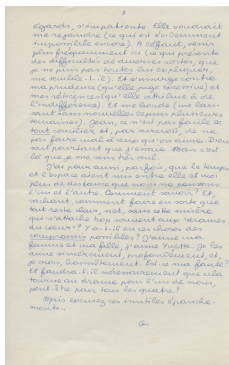 3
égards, s'impatiente. Elle voudrait
me rejoindre (ce qui est évidemment
impossible encore). A défaut, venir
plus fréquemment ici (ce qui présente
des difficultés de diverses sortes, que
je ne puis pas toutes lui expliquer,
me semble-t-il). Et
ma prudence (qu'elle juge excessive) et
mes réticences (qu'elle attribue à de
l'indifférence). Et me boude (me lais-
sant sans nouvelles depuis plusieurs
semaines). Or, ce n'est pas facile de
tout concilier et, par surcroît, de ne
pas faire mal à ceux qu'on aime. Dieu
sait pourtant que j'essaie. Mais c'est
là que je me sens très seul.
J'ai peur aussi, parfois, que le temps
et l'espace aient mis entre elle et moi
plus de distance que nous ne pensons
l'un et l'autre. Comment savoir? Et
sachant, comment faire en sorte que
tout reste clair, net, sans cette misère
qui s'attache trop souvent aux "drames
du cœur"? Y a-t-il en ces choses des
compromis possibles? J'aime ma
femme et ma fille, j'aime Yvette. Je les
aime sincèrement, profondément, et,
je crois, honnêtement. Est-ce ma faute?
Et faudra-t-il nécessairement que cela
tourne au drame pour l'un de nous,
peut-être pour tous les quatre?
Mais excusez ces inutiles épanche-
ments...